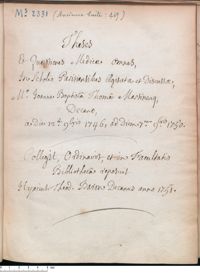 Ms 2331 (Ancienne Cote : 29)
Theses
Et Quæstiones Medicæ omnes,
In Scholis Parisiensibus Agitatæ et Discussæ,
M.º Joanne Baptista Thoma Martinenq,
Decano,
a die 12.ª 9bris 1746, ad diem 7.am 9bris 1750.
Collegit, Ordinavit, et in Facultatis
Bibliotheca reposuit
Hyacint. Theod. Baron Decanus anno 1751.